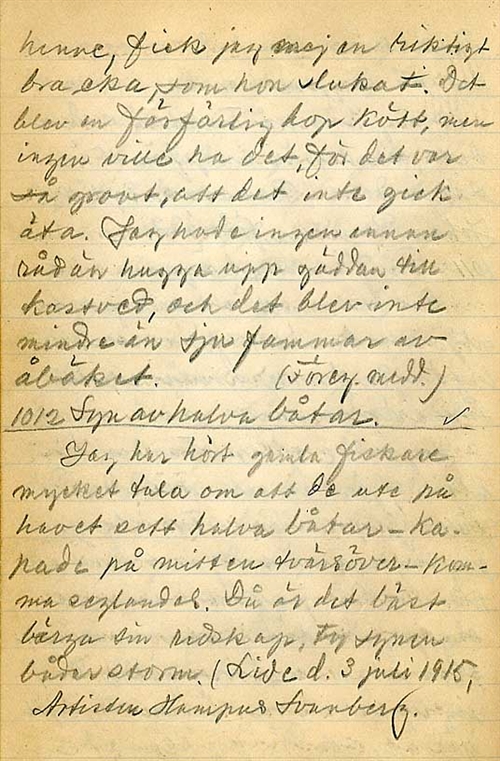 henne, fick jag mej en riktigt
bra eka, som hon slukat. Det
blev en förfärlig hop kött, men
ingen ville ha det, för det var
så grovt, att det inte gick
äta. Jag hade ingen annan
råd än hugga upp gäddan till
kastved, och det blev inte
mindre än sju fammar av
åbäket. (Föreg. medd.)
1012 Syn av halva båtar. ✓
Jag har hört gamla fiskare
mycket tala om att de ute på
havet sett halva båtar – ka-
pade på mitten tvärsöver – kom-
ma seglandes. Då är det bäst
bärga sin redskap, ty synen
bådar storm. (Lide d. 3 juli 1915,
Artisten Hampus Svanberg.